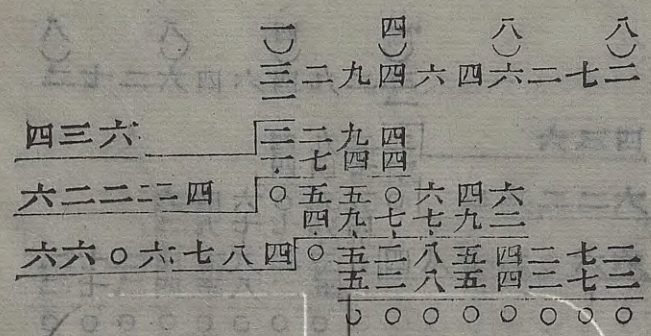 一) 四) 八) 八)
三二九四六四六二七二
一
四三六 二二九四
一七四四
六二二二四 ○五五○六四六
四九七七九二
六六○六七八四 ○五二八五四二七二
五二八五四二七二
○○○○○○○○